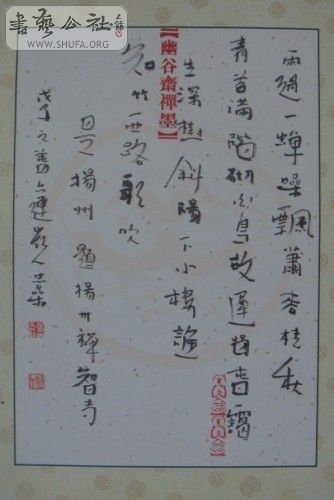 書藝公社
WWW.SHUFA.ORG
【幽谷齋禪墨】
雨過一蟬噪飄蕭松桂秋
青苔滿階砌白鳥故遲留暮靄
生深樹斜陽下小樓誰
知竹西路歌吹
是揚州題揚州禪智寺
戊子之春